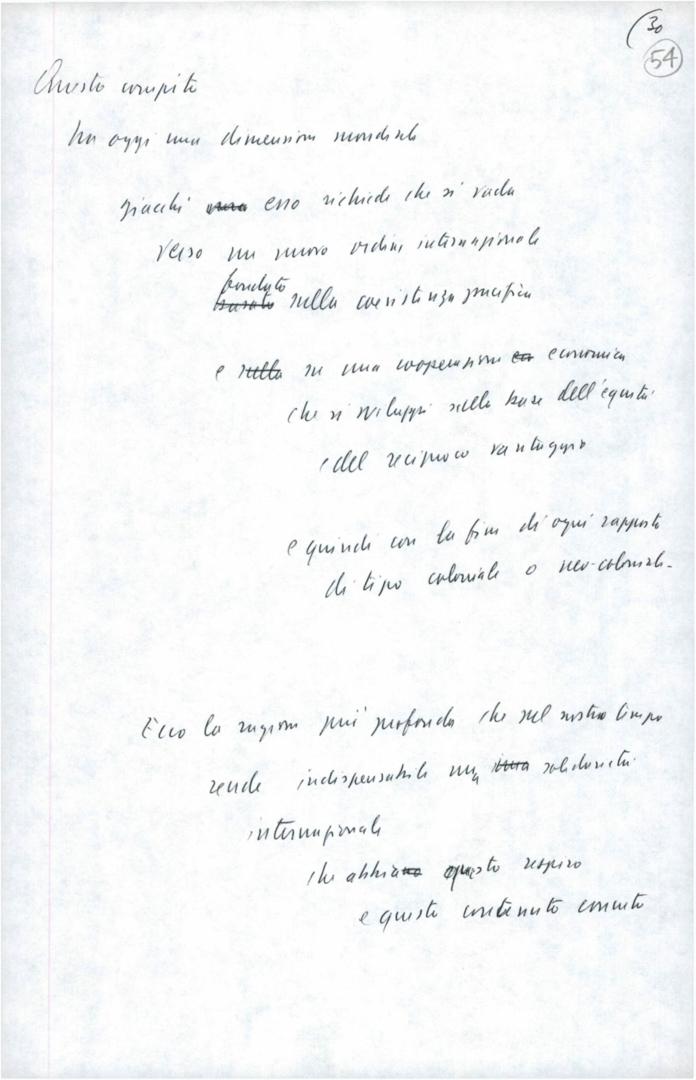 30
54
Questo compito
ha oggi una dimensione mondiale
giacché esso richiede che si vada
verso un nuovo ordine internazionale
fondato
basato sulla coesistenza pacifica
e sulla su una cooperazione economica
che si sviluppi sulla base dell'equità
e del reciproco vantaggio
e quindi con la fine di ogni rapporto
di tipo coloniale o neo-coloniale.
Ecco la ragione più profonda che nel nostro tempo
rende indispensabile una solidarietà
internazionale
che abbia questo respiro
e questo contenuto concreto